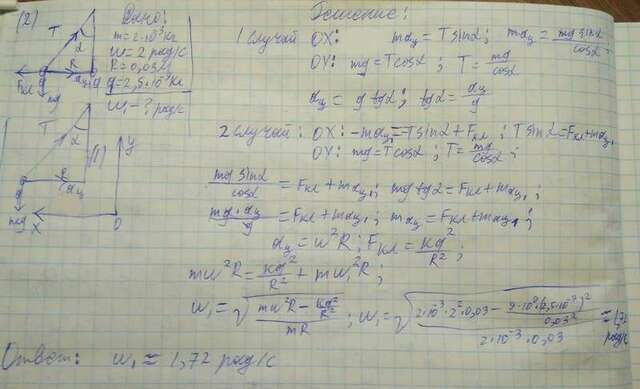 (2)
Дано:
m=2·10⁻³Кг
ω=2 рад/с
R=0,03м
q=2,5·10⁻⁹Кл
ω₁-? рад/с
Решение:
1 случай OX: maц=Tsinα; maц=mg sinα/cosα
OY: mg=Tcosα; T=mg/cosα
aц=g tgα; tgα=aц/g
2 случай: OX: -maц₁=-Tsinα+Fкл; Tsinα=Fкл+maц₁
OY: mg=Tcosα; T=mg/cosα;
mg sinα/cosα=Fкл+maц₁; mg tgα=Fкл+maц₁;
mg·aц/g=Fкл+maц₁; maц=Fкл+maц₁;
aц=ω²R; Fкл=kq²/R²;
mω²R=kq²/R²+mω₁²R;
ω₁=√((mω²R-kq²/R²)/mR); ω₁=√((2·10⁻³·2²·0,03-9·10⁹·(2,5·10⁻⁹)²/0,03²)/(2·10⁻³·0,03))≈1,72 рад/с
Ответ: ω₁≈1,72 рад/с
T
α
Fкл
R
aц
q
mg
T
α
(1)
y
R
aц
mg
X
O